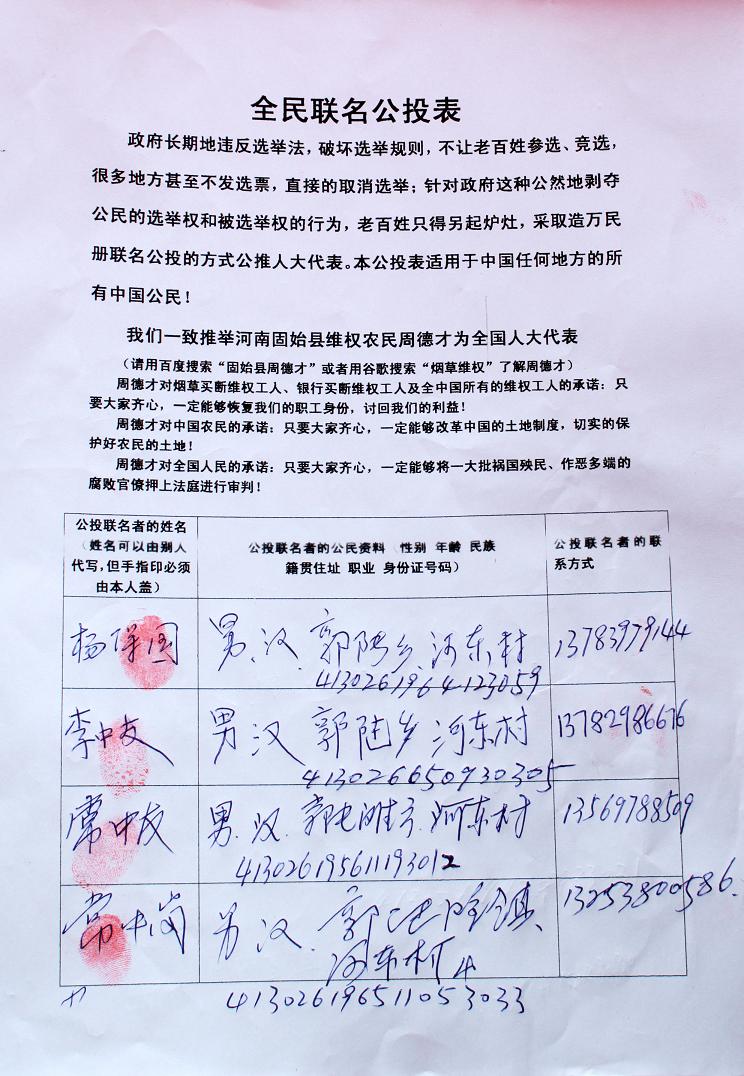 全民联名公投表
政府长期地违反选举法，破坏选举规则，不让老百姓参选、竞选，
很多地方甚至不发选票，直接的取消选举；针对政府这种公然地剥夺
公民的选举权和被选举权的行为，老百姓只得另起炉灶，采取造万民
册联名公投的方式公推人大代表。本公投表适用于中国任何地方的所
有中国公民！
我们一致推举河南固始县维权农民周德才为全国人大代表
（请用百度搜索“固始县周德才”或者用谷歌搜索“烟草维权”了解周德才）
周德才对烟草买断维权工人、银行买断维权工人及全中国所有的维权工人的承诺：只
要大家齐心，一定能够恢复我们的职工身份，讨回我们的利益！
周德才对中国农民的承诺：只要大家齐心，一定能够改革中国的土地制度，切实的保
护好农民的土地！
周德才对全国人民的承诺：只要大家齐心，一定能够将一大批祸国殃民、作恶多端的
腐败官僚押上法庭进行审判！
公投联名者的姓名
（姓名可以由别人
代写，但手指印必须
由本人盖）
公投联名者的公民资料（性别 年龄 民族
籍贯住址 职业 身份证号码）
公投联名者的联
系方式
杨保国
男、汉、郭陆乡、河东村
413026196412305 9
13783979144
李中友
男 汉 郭陆乡 河东村
413026650930305
13782986676
常中友
男、汉、河东村
413026195611193012
13569788509
常中岗
男 汉、郭陆镇、
河东村
413026196511053033
13253800586.